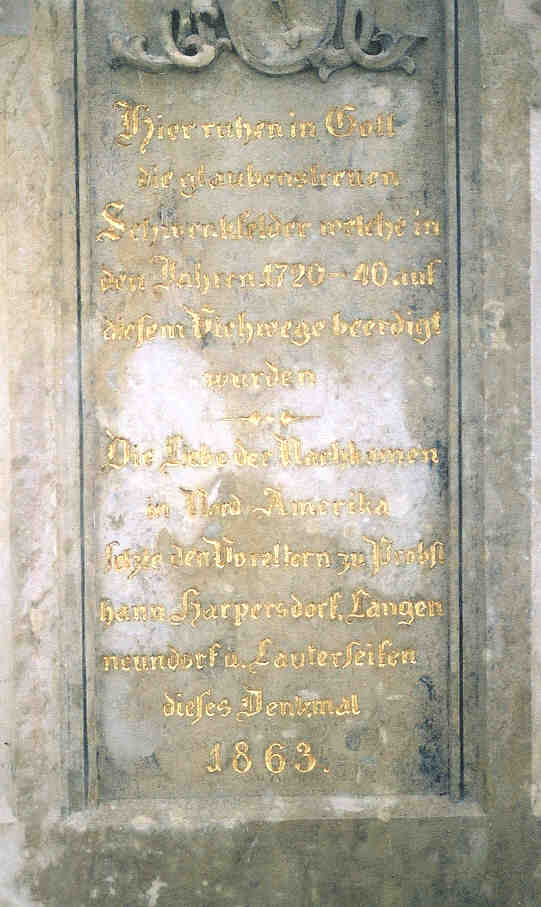 Hier ruhen in Gott
die glaubenstreuen
Schwenkfelder welche in
den Jahren 1720-40 auf
diesem Viehwege beerdigt
wurden
Die Liebe der Nachkomen
in Nord-Amerika
setzte den Voreltern zu Probst
hann Harpersdorf, Langen
neundorf u. Lauterseifen
dieses Denkmal
1863.